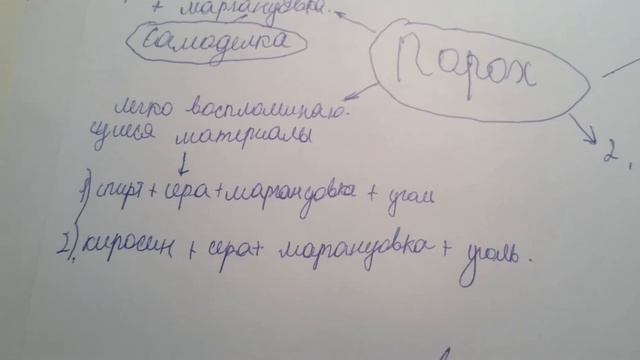 + маргандовка.
Самоделка
Парох
легко воспломинаю-
щиеся материалы
1) спирт + сера + маргандовка + угол
2) киросин + сера + маргандовка + уголь.
2.